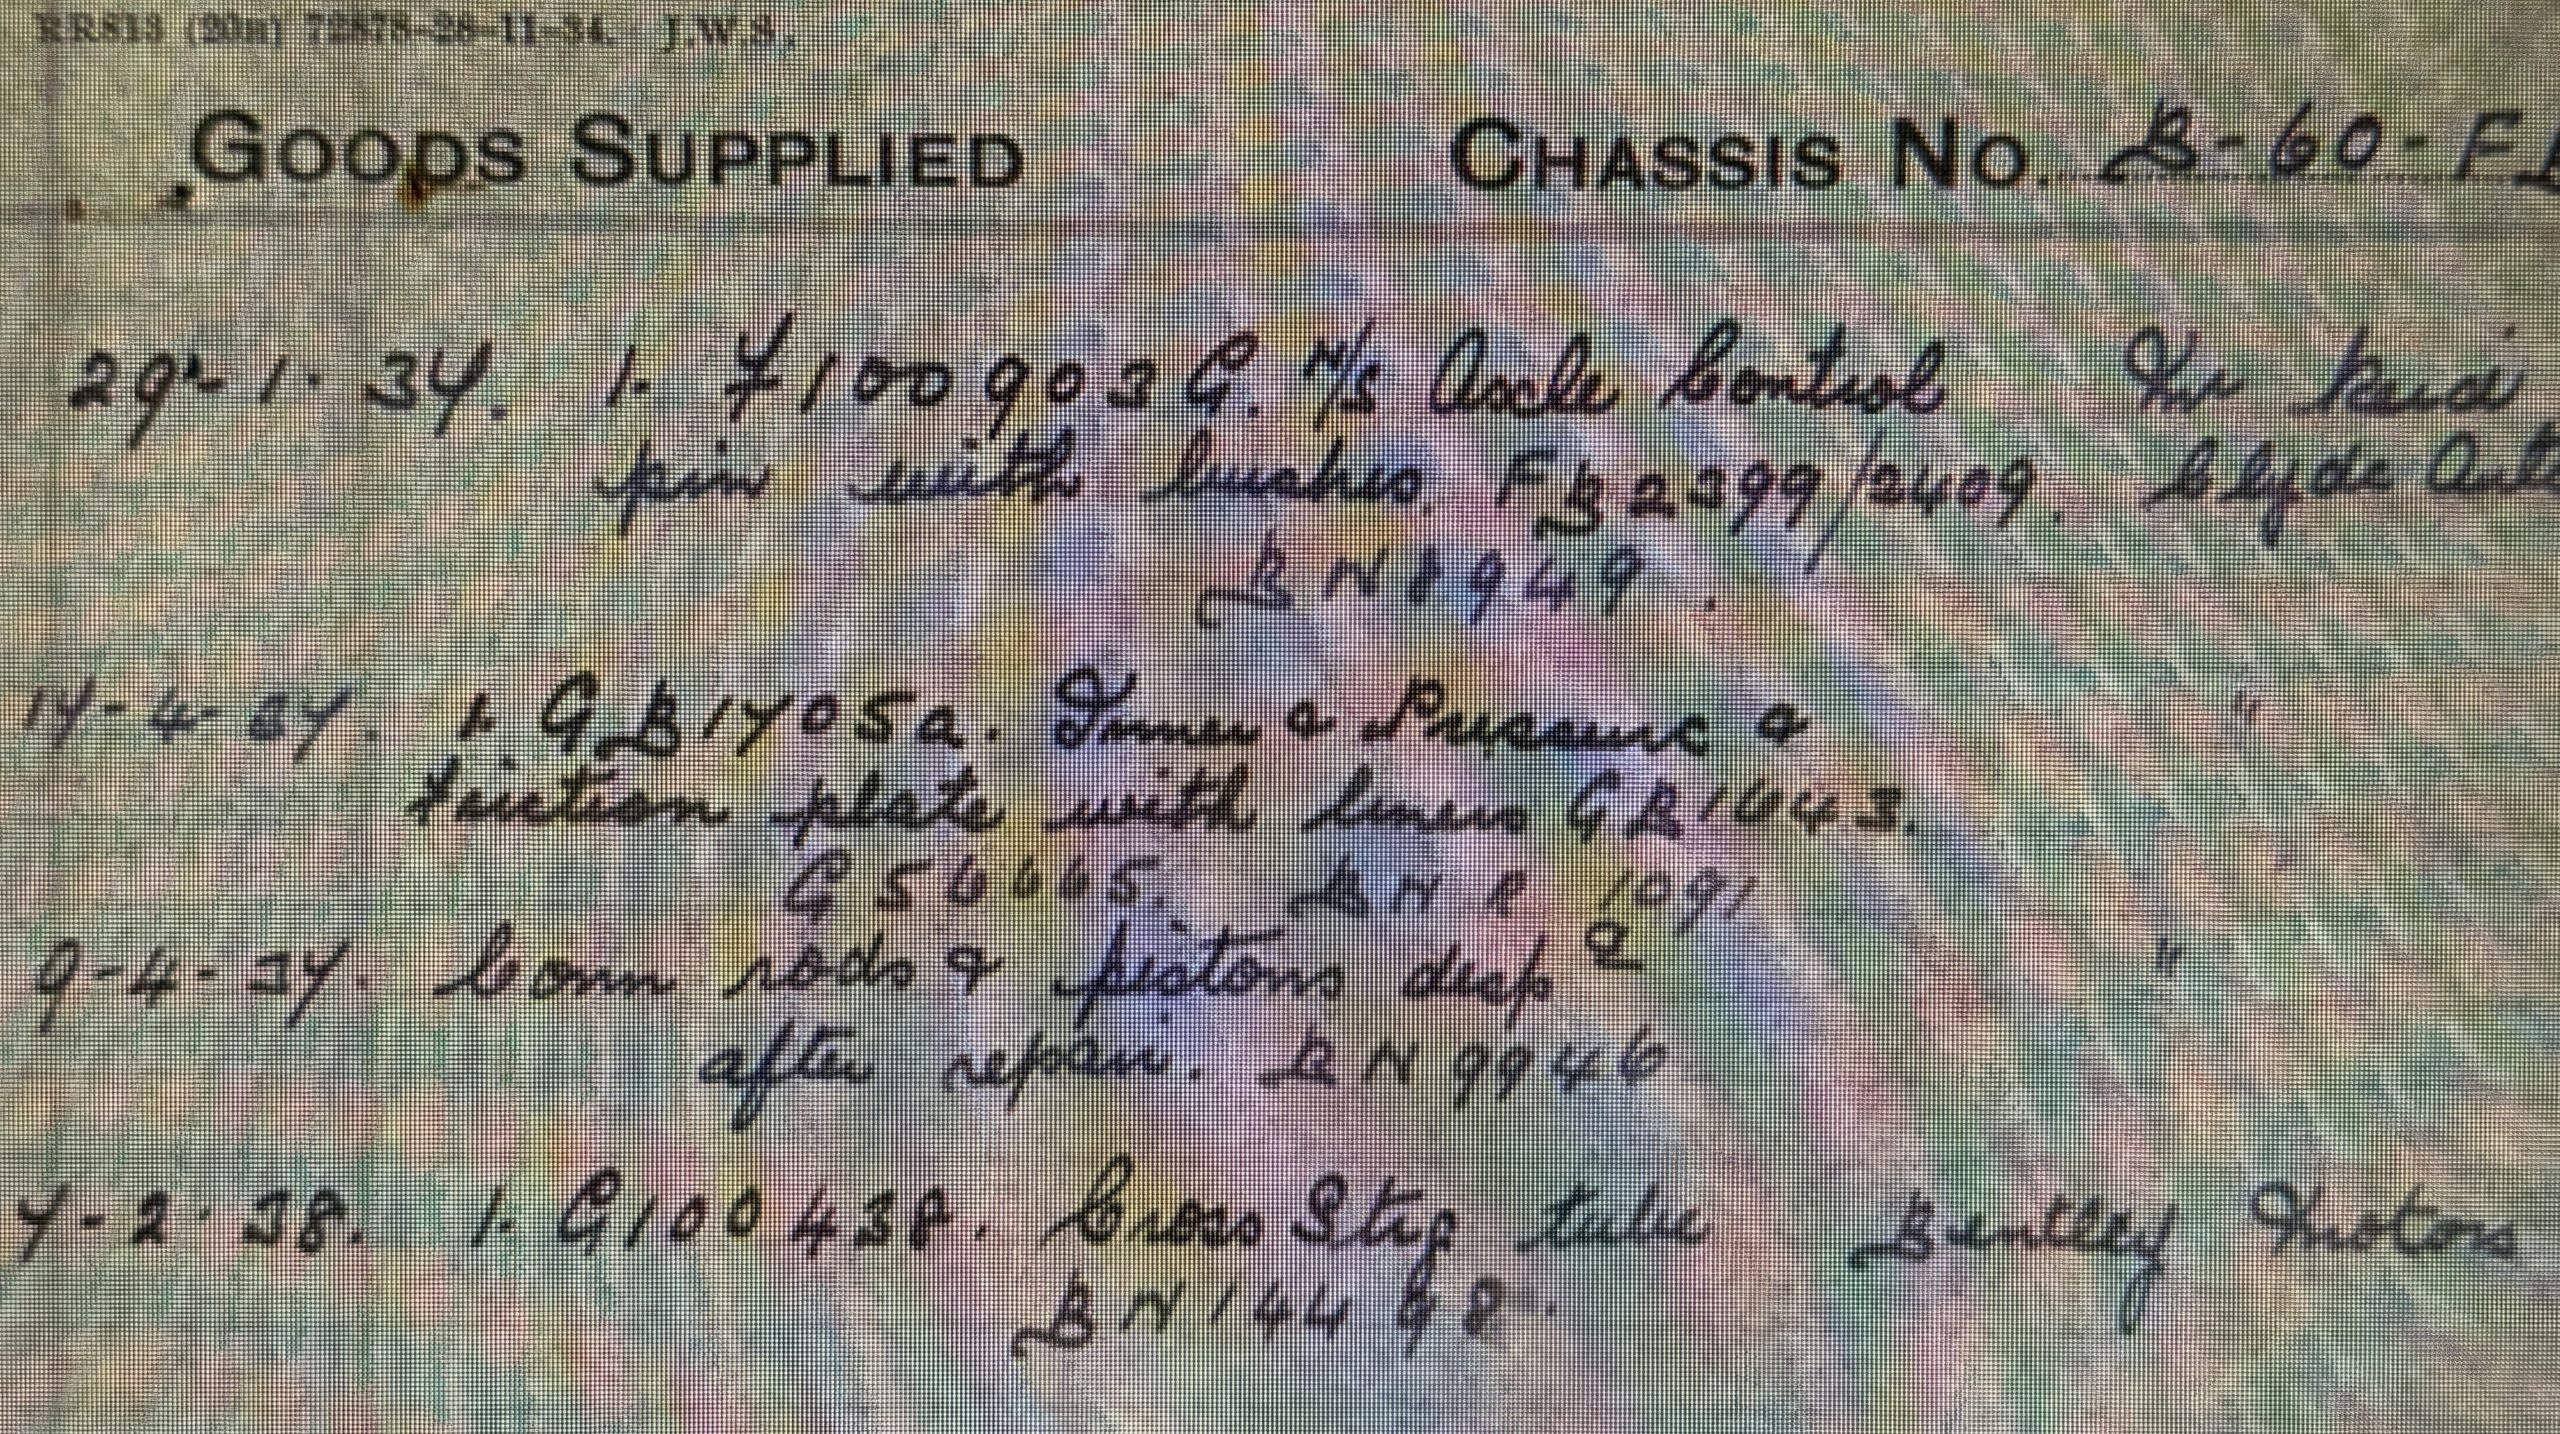 RR813 (20n) 72878-28-11-34. J.W.S.
GOODS SUPPLIED CHASSIS No. B-60-F
29-1-37. 1. F100903G. N/S Axle Control Mr Reid
pin with bushes. FB2399/2409. Clyde Auto
BN8949.
17-4-37. 1. GB1705a. Inner & Pressure & "
friction plate with liners GB1643.
G56665. BNR 1091
9-4-37. Conn rods & pistons desp d "
after repair. BN9946
7-2-38. 1. G100438. Cross Stg tube Bentley Motors
BN14498.